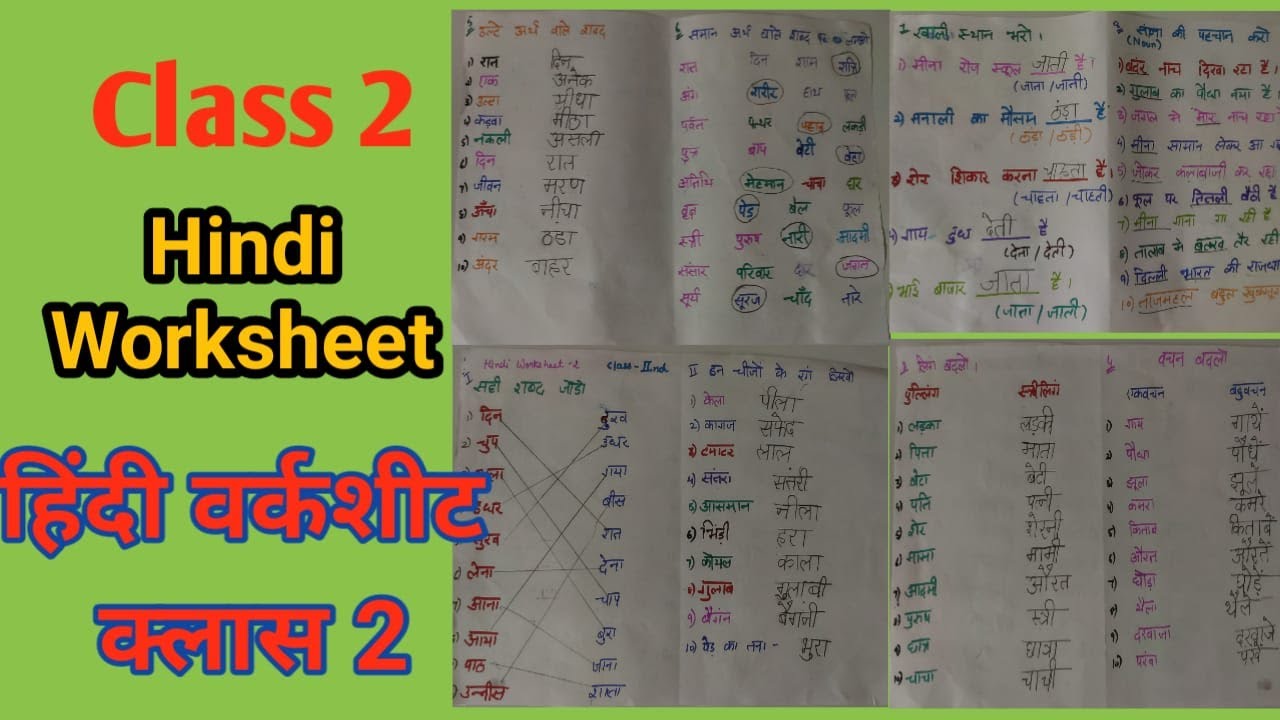 Class 2
Hindi
Worksheet
हिंदी वर्कशीट
क्लास 2
उल्टे अर्थ वाले शब्द
1) रात दिन
2) एक अनेक
3) उल्टा सीधा
4) कड़वा मीठा
5) नकली असली
6) दिन रात
7) जीवन मरण
8) ऊँचा नीचा
9) गरम ठंडा
10) अंदर बाहर
समान अर्थ वाले शब्द पर
रात दिन शाम रात्रि
अंग शरीर हाथ फूल
पर्वत पत्थर पहाड़ लकड़ी
पुत्र बाप बेटी बेटा
अतिथि मेहमान चाचा घर
वृक्ष पेड़ बेल फूल
स्त्री पुरुष नारी आदमी
संसार परिवार जगत
सूर्य सूरज चाँद तारे
I खाली स्थान भरो।
1) मीना रोज स्कूल जाती है।
(जाता / जाती)
2) मनाली का मौसम ठंडा है
(ठंडा / ठंडी)
3) शेर शिकार करना चाहता है।
(चाहता / चाहती)
4) गाय दूध देती है
(देता / देती)
भाई बाजार जाता है।
(जाता / जाती)
संज्ञा की पहचान करो
(Noun)
1) बंदर नाच दिखा रहा है।
2) गुलाब का पौधा नया है।
3) जंगल में मोर नाच रहा
4) मीना सामान लेकर आ
5) जोकर कलाबाजी कर रहा
6) फूल पर तितली बैठी है
7) मीना गाना गा रही है
8) तालाब में बतख तैर रही
9) दिल्ली भारत की राजधा
10) ताजमहल बहुत खूबसूर
Hindi Worksheet -2 Class-IInd
I सही शब्द जोड़ो
1) दिन दुख
2) चुप उधर
गया
बीस
रात
लेना देना
आना चाप
आया बुरा
पाठ जाना
उन्नीस
II इन चीजों के रंग लिखो
1) केला पीला
2) कागज सफेद
3) टमाटर लाल
4) संतरा संतरी
5) आसमान नीला
6) भिंडी हरा
7) कोयल काला
8) गुलाब गुलाबी
9) बैंगन बैंगनी
10) पेड़ का तना - भुरा
लिंग बदलो।
पुल्लिंग स्त्रीलिंग
1) लड़का लड़की
2) पिता माता
3) बेटा बेटी
4) पति पत्नी
5) शेर शेरनी
6) मामा मामी
7) आदमी औरत
8) पुरुष स्त्री
9) छात्र छात्रा
10) चाचा चाची
वचन बदलो
एकवचन बहुवचन
1) गाय गायें
2) पौधा पौधें
3) झूला झूले
4) कमरा कमरे
5) किताब किताबें
6) औरत औरतें
7) घोड़ा घोड़े
8) थैला थैले
9) दरवाजा दरवाजे
10) पंखा पंखे